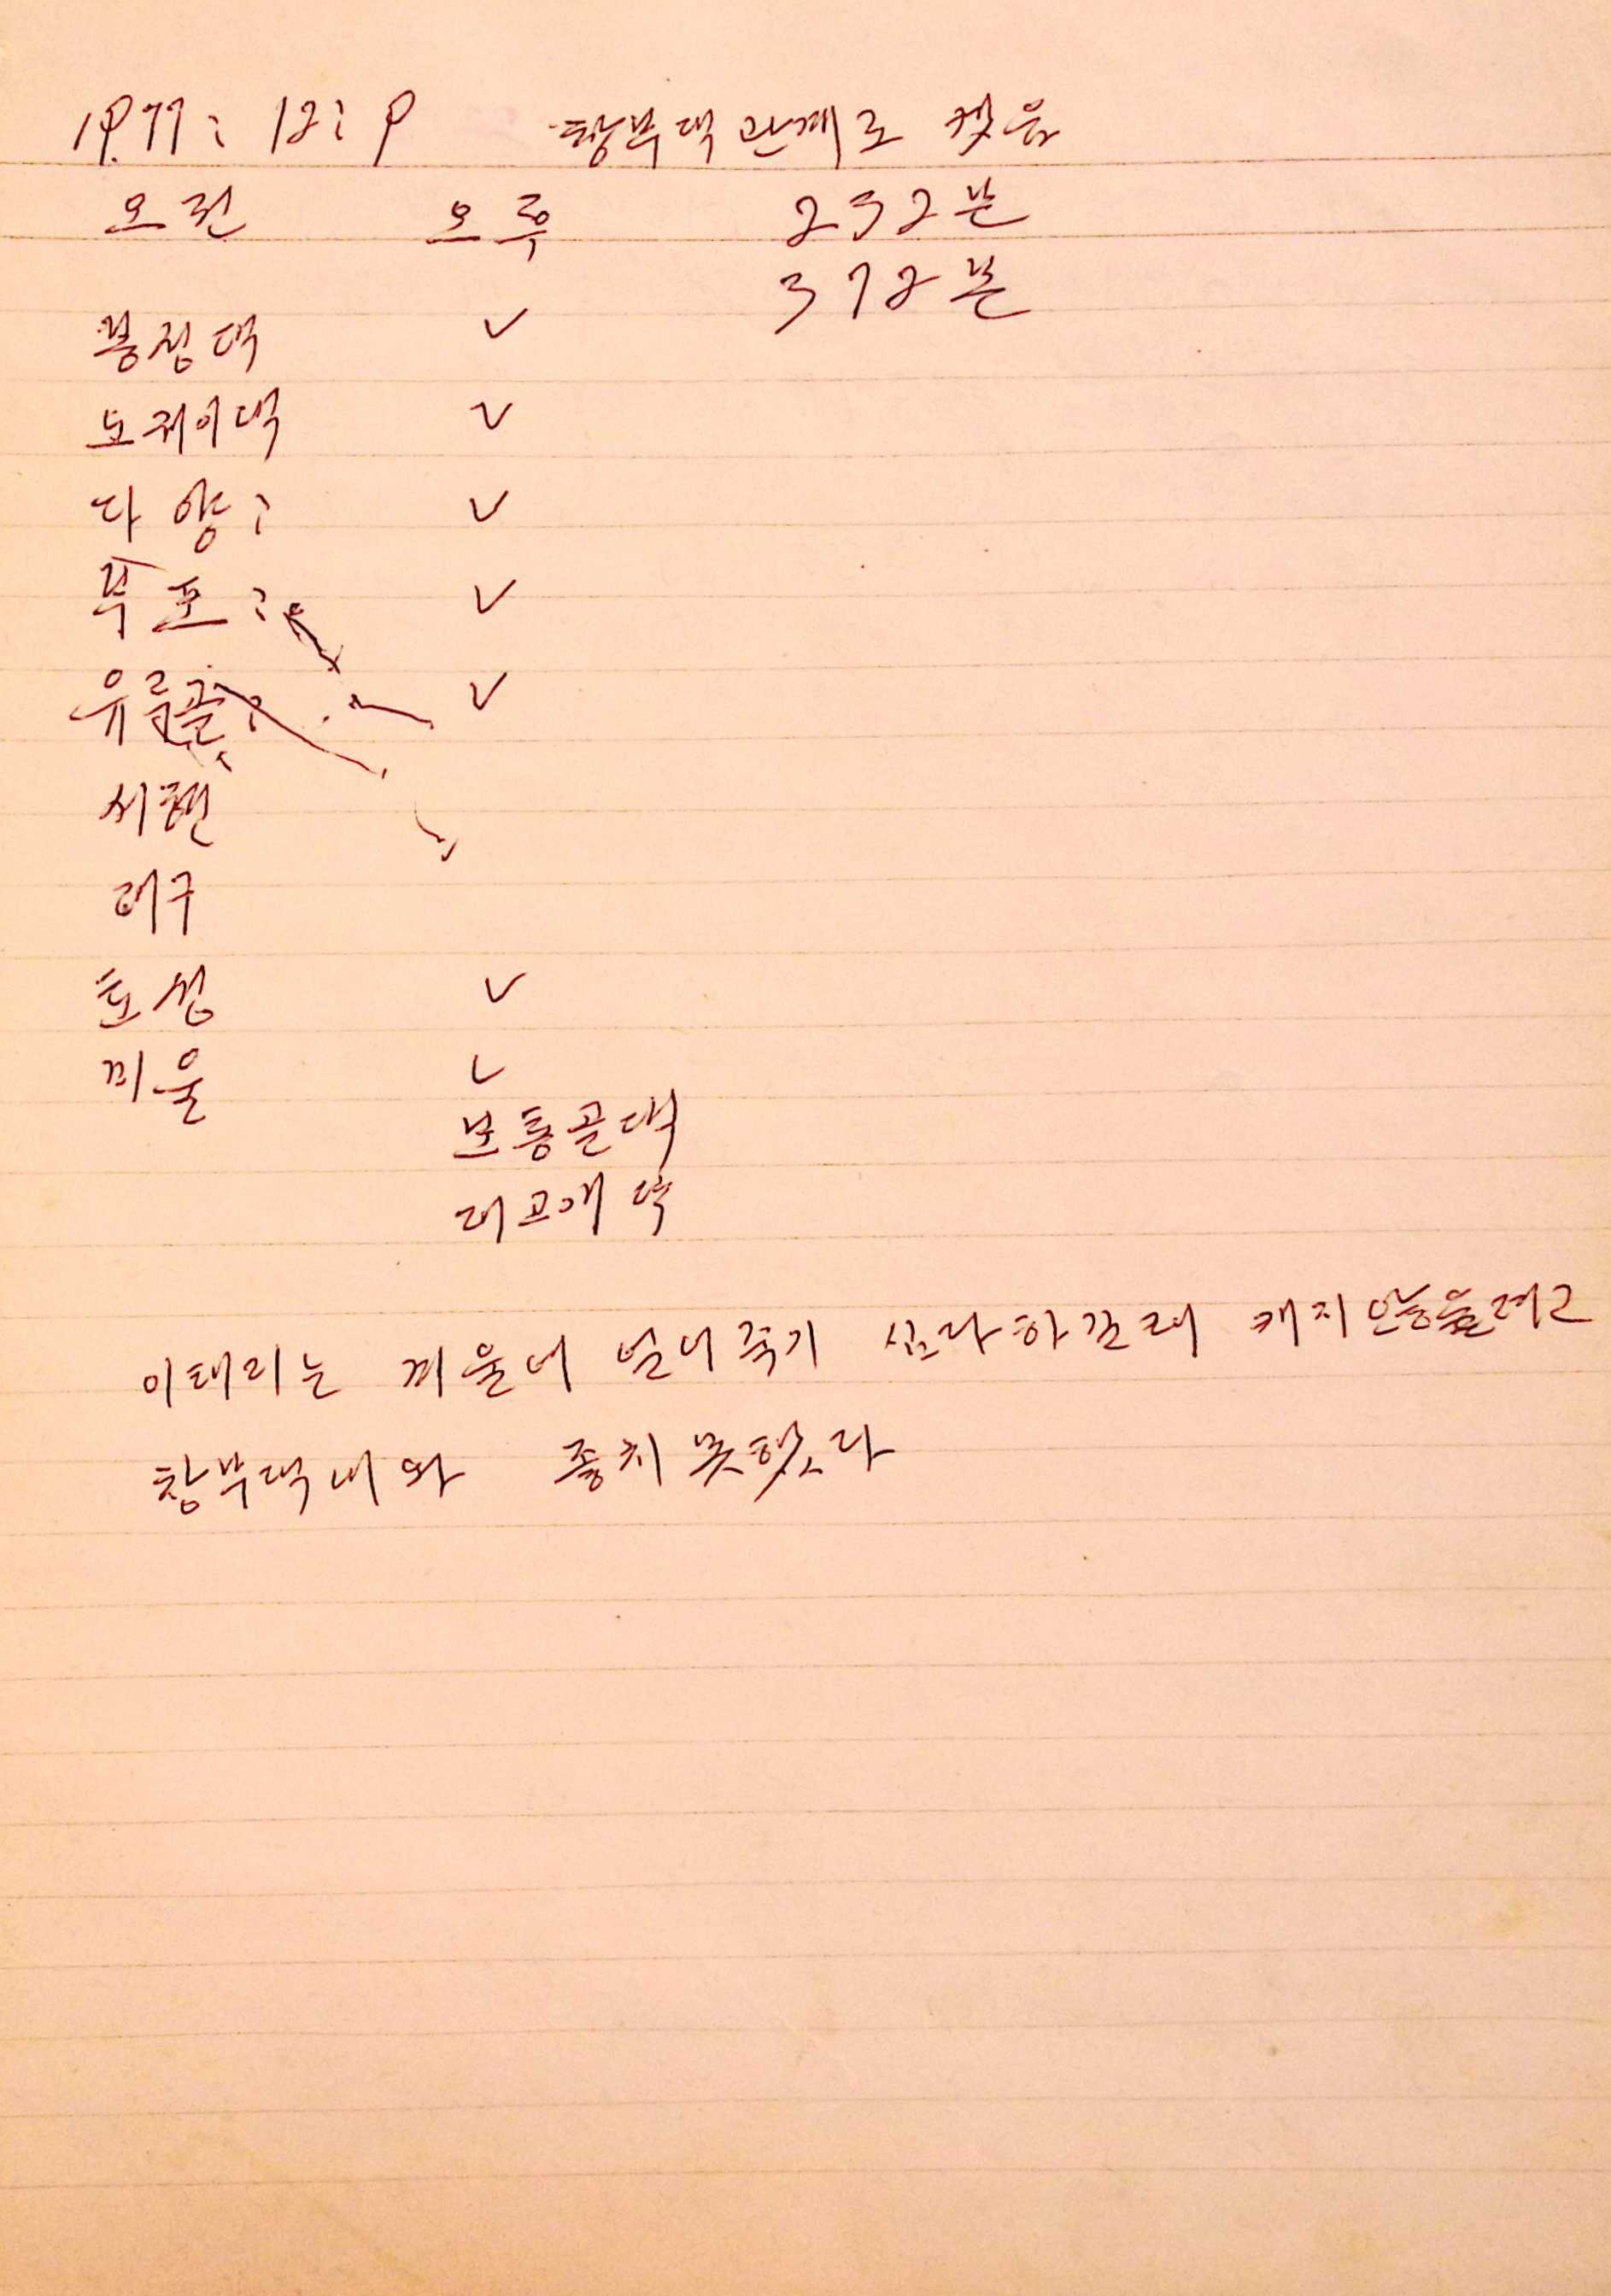 1977: 12: 9 창부댁 관계로 캣음
오전 오후 232분
372분
봉정댁 ✓
노귀이댁 ✓
다양: ✓
부포: ✓
유름골: ✓
서편
대구
효성 ✓
끼울 ✓
보통골댁
대고개댁
이태리는 끼울어 널어죽기 십다하길래 캐지안을려고
창부댁내와 좋치못했다